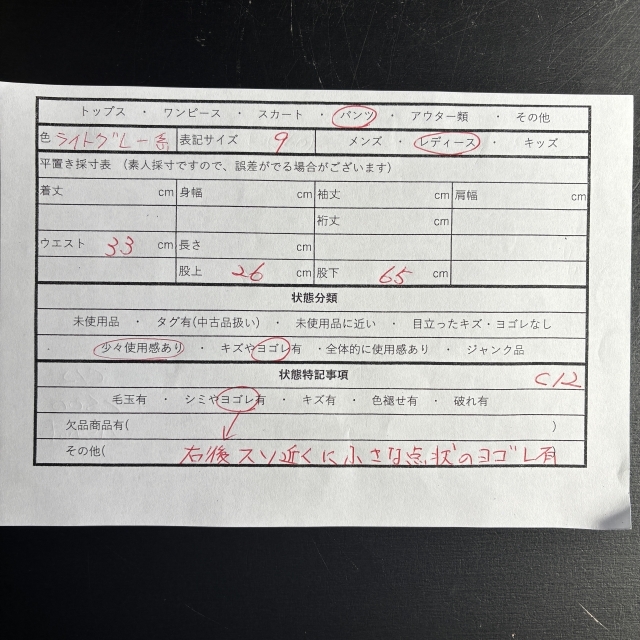 トップス ・ ワンピース ・ スカート ・ パンツ ・ アウター類 ・ その他
色 ライトグレー系 表記サイズ 9 メンズ ・ レディース ・ キッズ
平置き採寸表 （素人採寸ですので、誤差がでる場合がございます）
着丈 cm 身幅 cm 袖丈 cm 肩幅 cm
裄丈 cm
ウエスト 33 cm 長さ cm
股上 26 cm 股下 65 cm
状態分類
未使用品 ・ タグ有(中古品扱い) ・ 未使用品に近い ・ 目立ったキズ・ヨゴレなし
少々使用感あり ・ キズやヨゴレ有 ・全体的に使用感あり ・ ジャンク品
状態特記事項 C12
毛玉有 ・ シミやヨゴレ有 ・ キズ有 ・ 色褪せ有 ・ 破れ有
欠品商品有( )
その他( 右後スソ近くに小さな点状のヨゴレ有